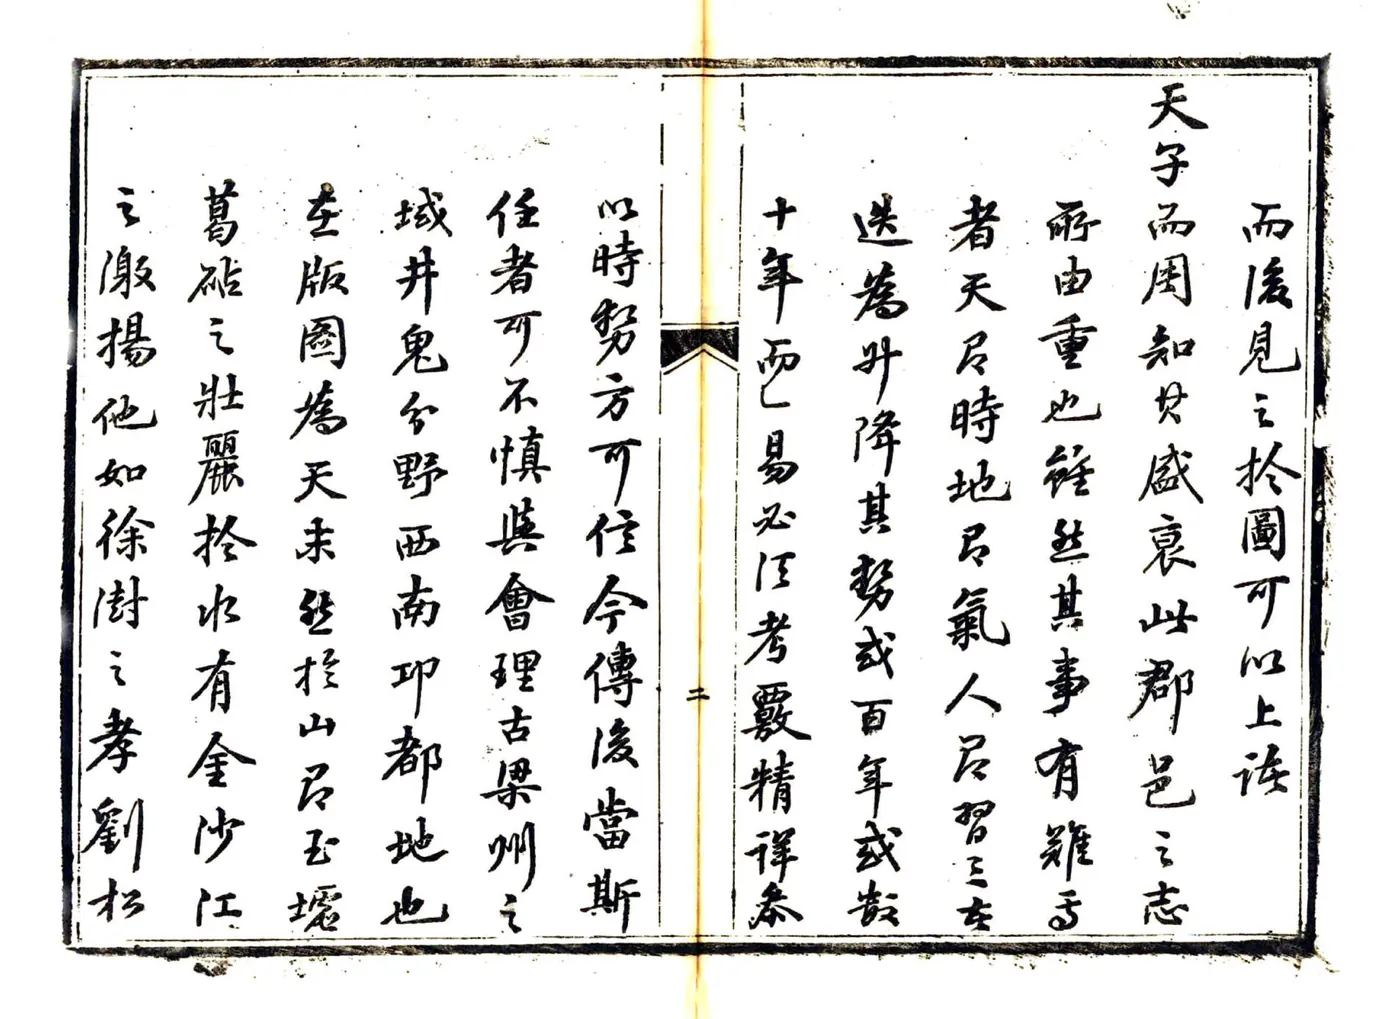 而後見之於圖可以上語
天子而周知其盛衰此郡邑之志
所由重也雖然其事有難焉
者天有時地有氣人有習三者
迭為升降其勢或百年或數
十年而已易必須考覈精詳參
二
以時勢方可信今傳後當斯
任者可不慎與會理古梁州之
域井鬼分野西南邛都地也
在版圖為天末然於山有玉墟
葛砧之壯麗於水有金沙江
之激揚他如徐澍之孝劉松